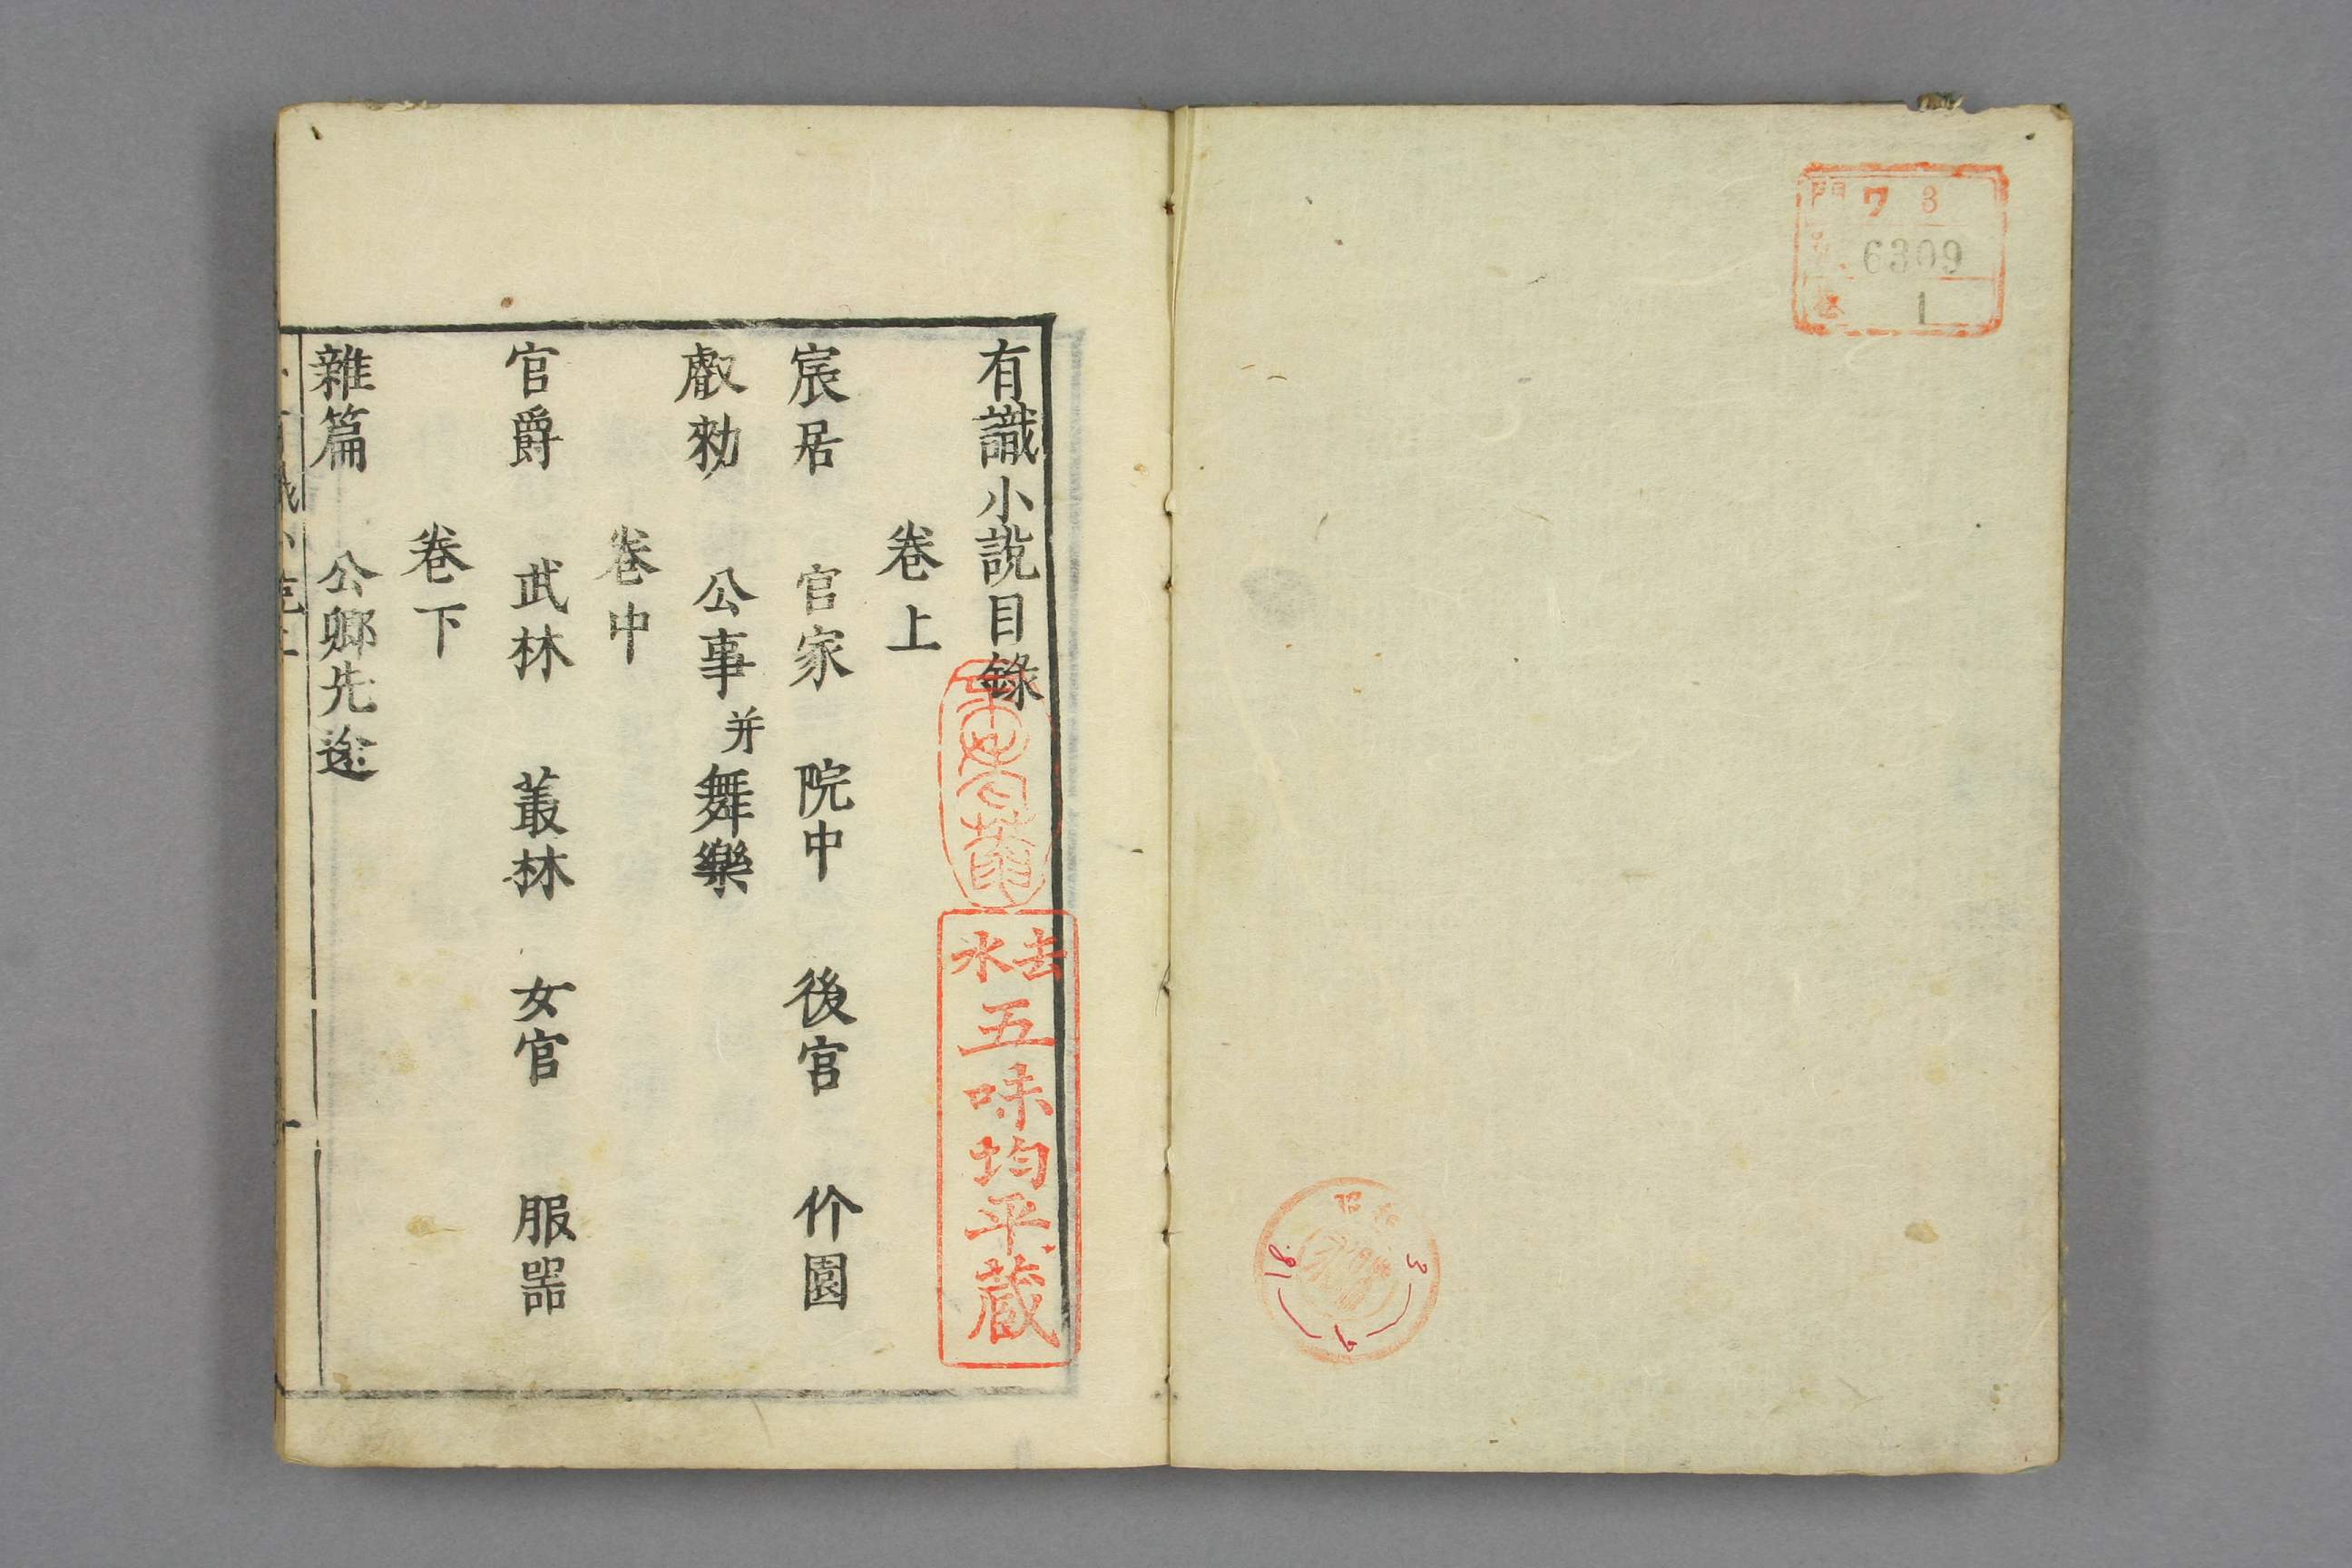 門 ワ 3
6309
1
有識小説目錄
卷上
宸居 官家 院中 後宮 竹園
叡勑 公事并舞樂
卷中
官爵 武林 叢林 女官 服器
卷下
雜篇 公卿先途
去水
五味均平蔵